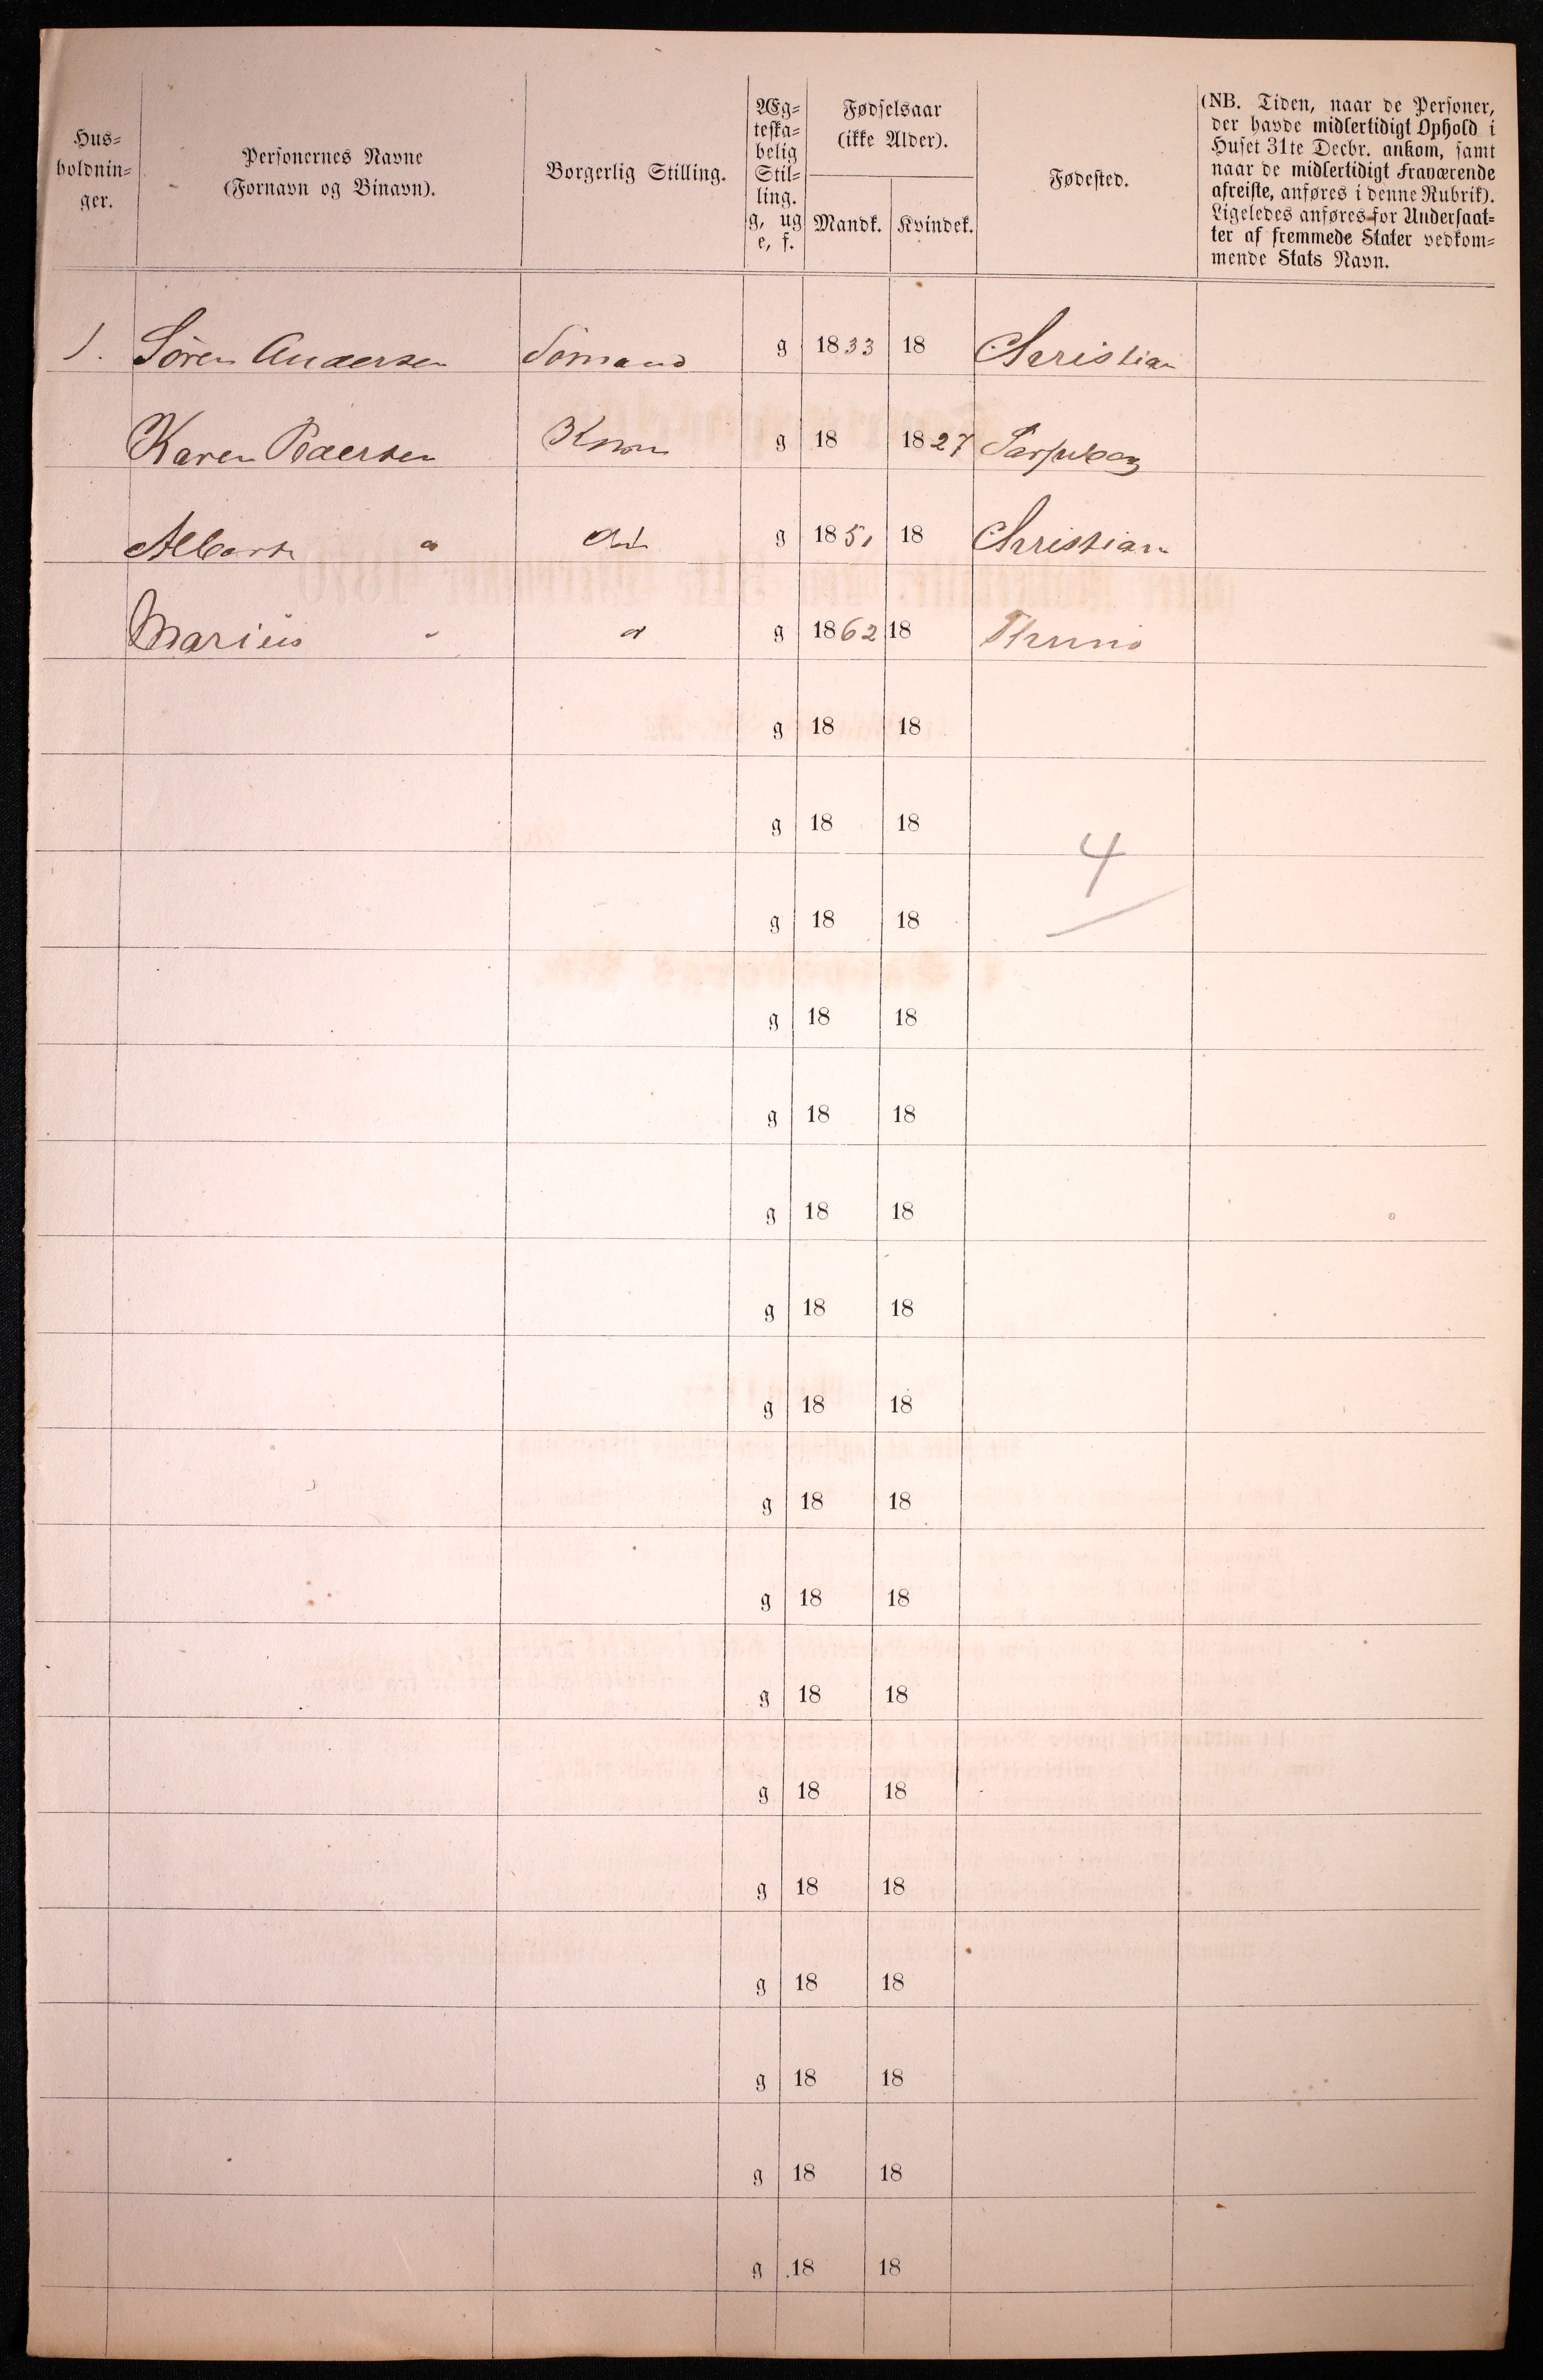 Hus-
holdnin-
ger.
Personernes Navne
(Fornavn og Binavn).
Borgerlig Stilling.
Æg-
teska-
belig
Stil-
ling.
g, ug
e, f.
Fødselsaar
(ikke Alder).
Mandk. Kvindek.
Fødested.
(NB. Tiden, naar de Personer,
der havde midlertidigt Ophold i
Huset 31te Decbr. ankom, samt
naar de midlertidigt Fraværende
afreiste, anføres i denne Rubrik).
Ligeledes anføres for Undersaat-
ter af fremmede Stater vedkom-
mende Stats Navn.
1. Sören Andersen Sömand g 1833 18 Christian
Karen Pedersen Kone g 18 1827 Sarpsborg
Albert " g 1851 18 Christian
Marius " " g 1862 18 Thunö
g 18 18
g 18 18
4
g 18 18
g 18 18
g 18 18
g 18 18
g 18 18
g 18 18
g 18 18
g 18 18
g 18 18
g 18 18
g 18 18
g 18 18
g 18 18
g 18 18
g 18 18